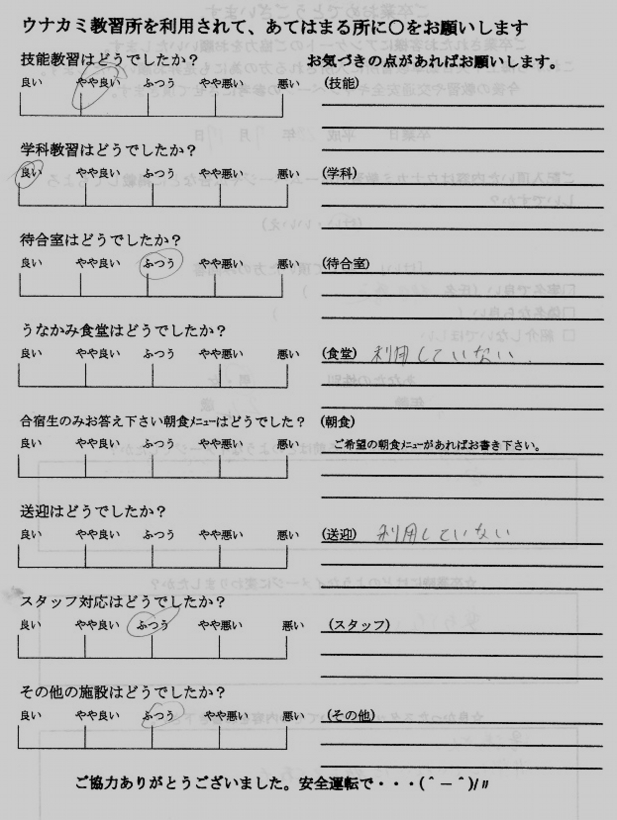 ウナカミ教習所を利用されて、あてはまる所に〇をお願いします
技能教習はどうでしたか？
お気づきの点があればお願いします。
良い やや良い ふつう やや悪い 悪い
(技能)
学科教習はどうでしたか？
良い やや良い ふつう やや悪い 悪い
(学科)
待合室はどうでしたか？
良い やや良い ふつう やや悪い 悪い
(待合室)
うなかみ食堂はどうでしたか？
良い やや良い ふつう やや悪い 悪い
(食堂) 利用していない
合宿生のみお答え下さい朝食ﾒﾆｭｰはどうでしたか？
(朝食)
良い やや良い ふつう やや悪い 悪い
ご希望の朝食ﾒﾆｭｰがあればお書き下さい。
送迎はどうでしたか？
良い やや良い ふつう やや悪い 悪い
(送迎) 利用していない
スタッフ対応はどうでしたか？
良い やや良い ふつう やや悪い 悪い
(スタッフ)
その他の施設はどうでしたか？
良い やや良い ふつう やや悪い 悪い
(その他)
ご協力ありがとうございました。安全運転で・・・(＾－＾)/〃